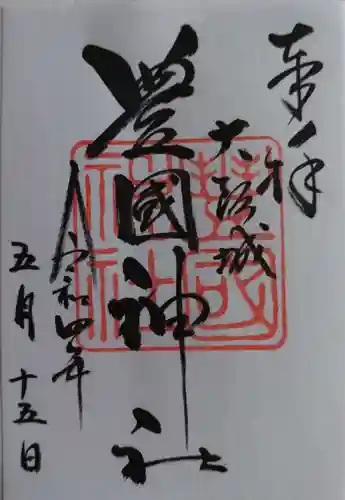 奉拝
大阪城
豊國神社
令和四年
五月十五日